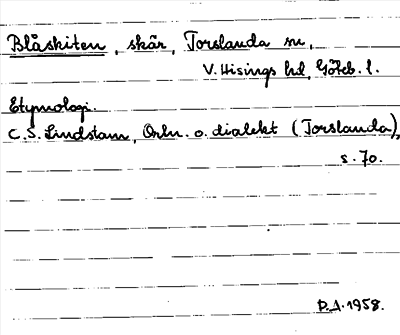 Blåskiten, skär, Torslanda sn,
V. Hisings hd, Göteb. l.
Etymologi.
C. S. Lindstam, Ortn. o. dialekt (Torslanda),
s. 70.
P.A. 1958.